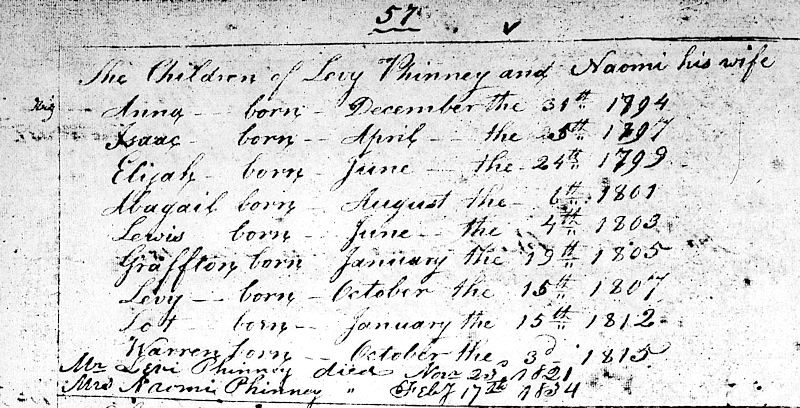 57
The Children of Levy Phinney and Naomi his wife
Anna born December the 31th 1794
Isaac born April the 1797
Elijah born June the 24th 1799
Abagail born August the 6th 1801
Lewis born June the 4th 1803
Graffton born January the 19th 1805
Levy born October the 15th 1807
Lot born January the 15th 1812
Warren born October the 3d 1815
Mr Levi Phinney died Novr 1821
Mrs Naomi Phinney " Feby 17th 1834